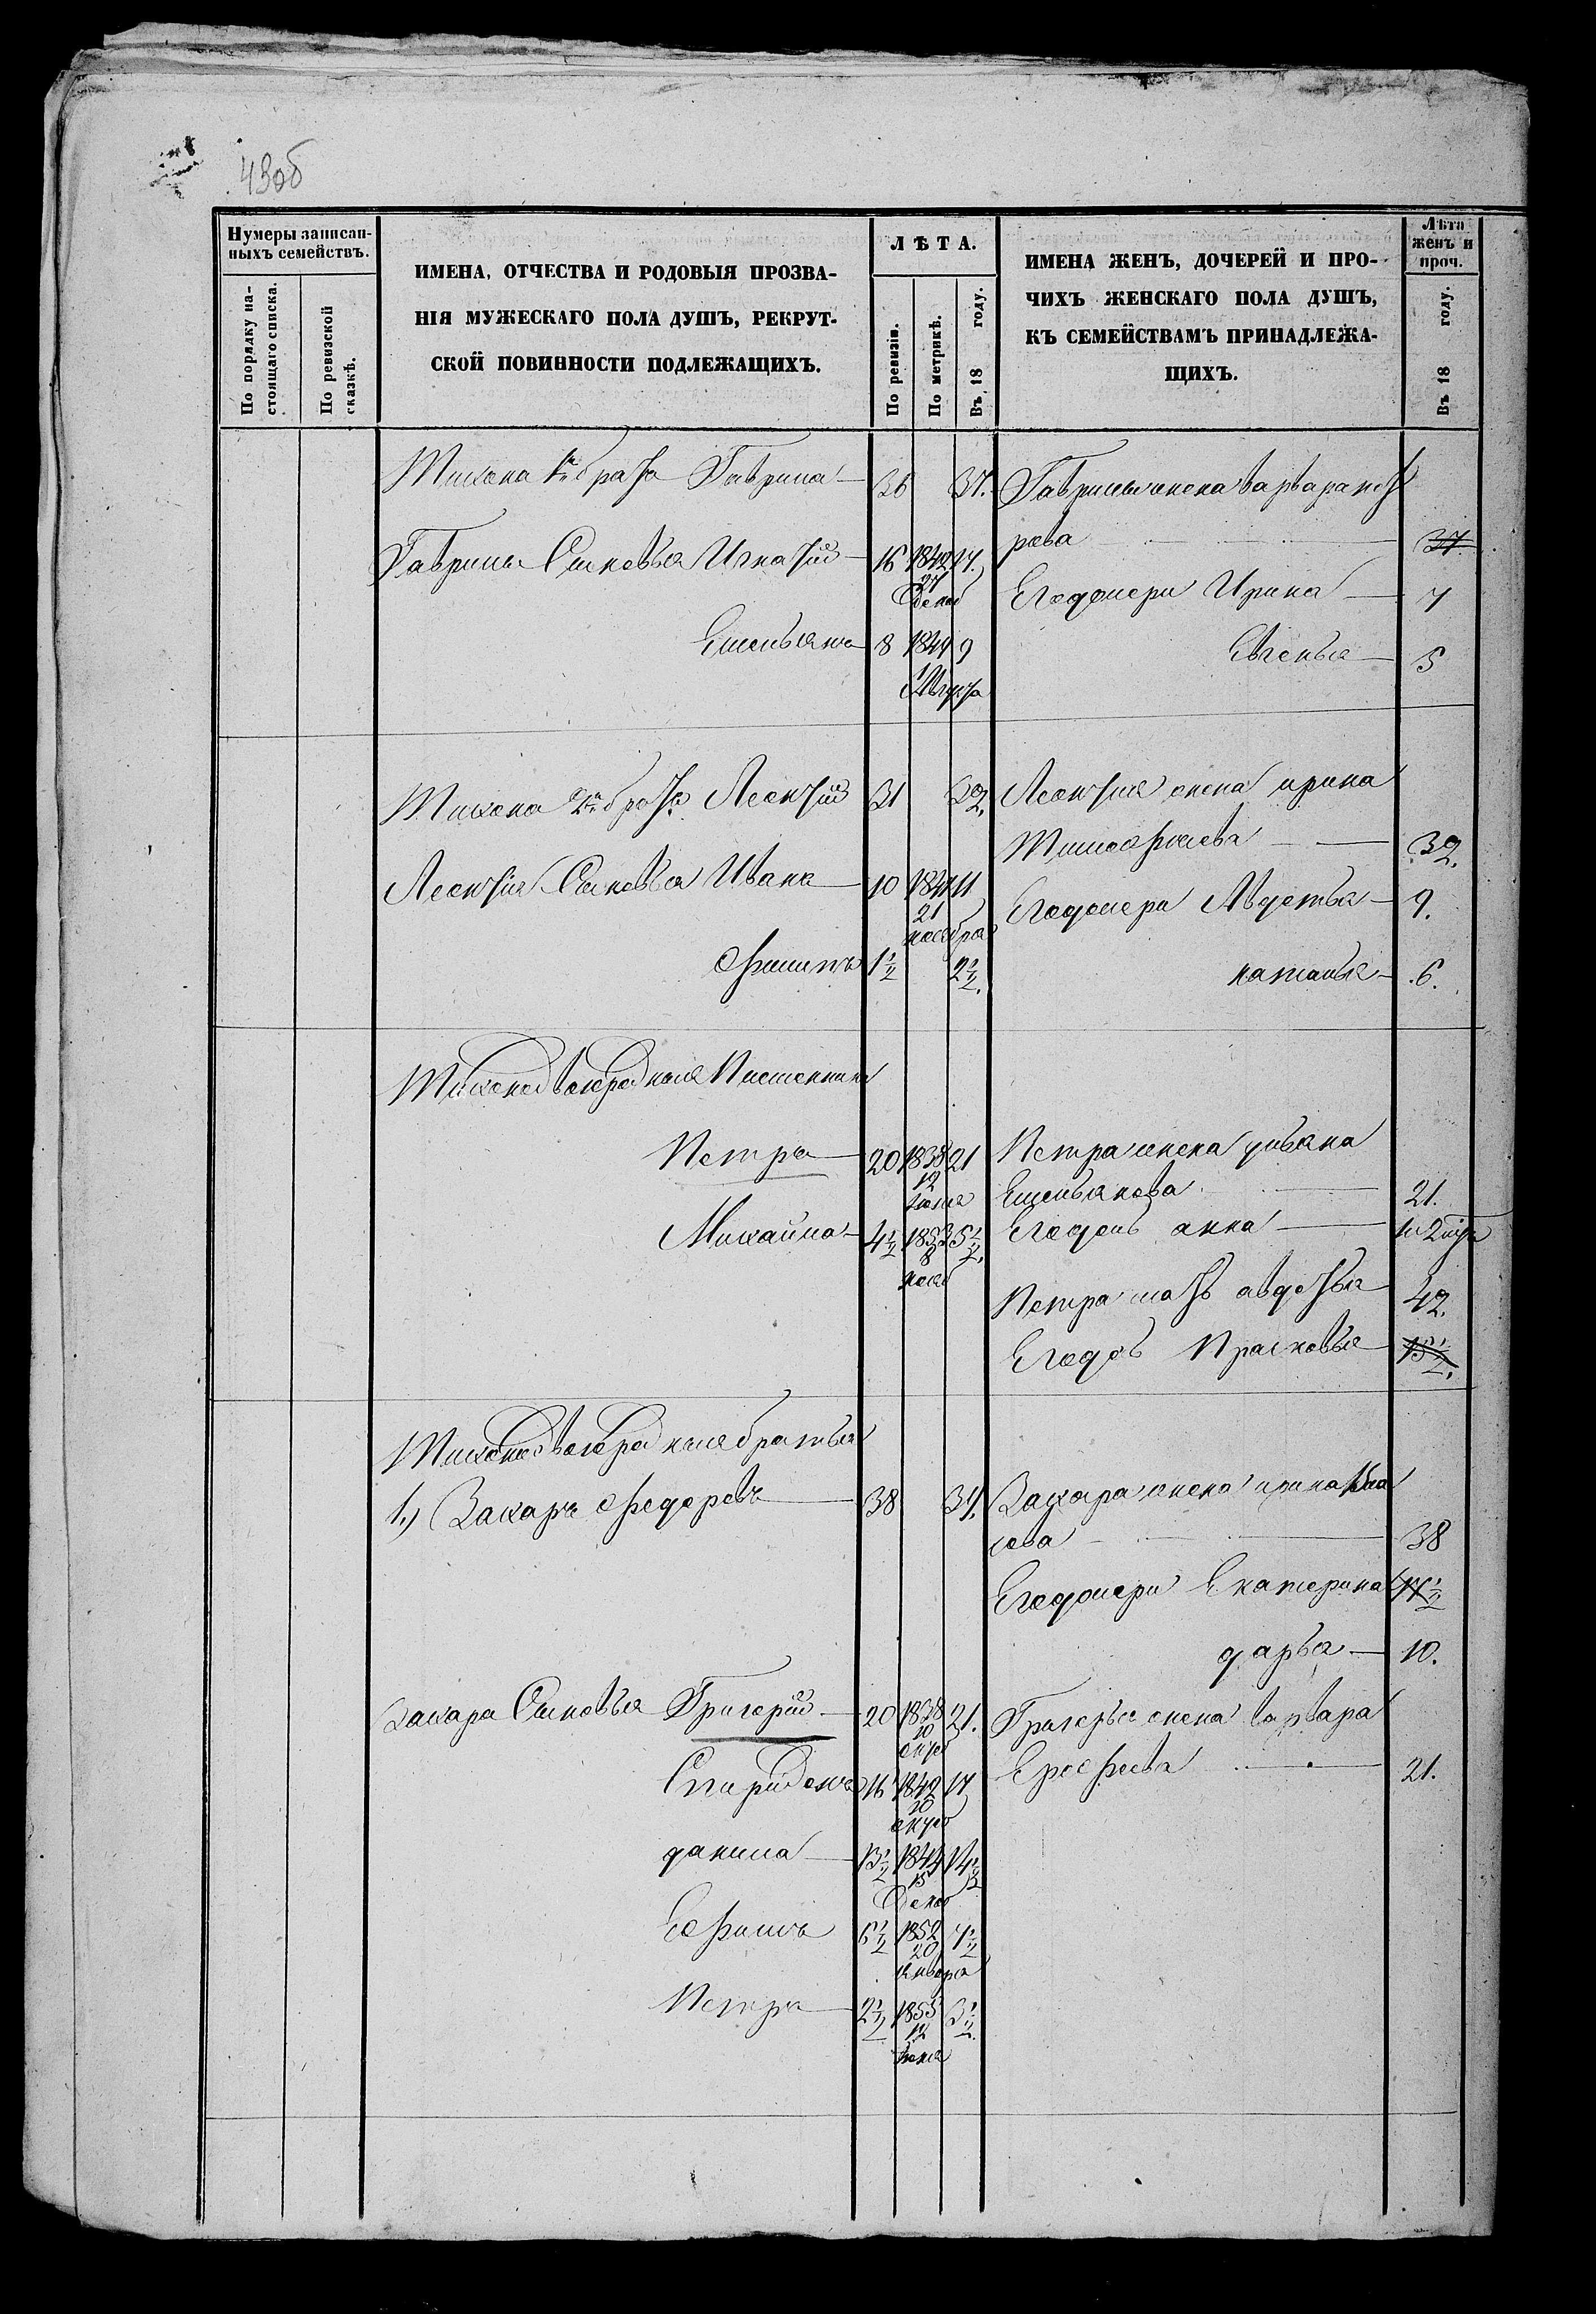 430б
Нумеры записан-
ныхъ семействъ.
По порядку на-
стоящаго списка.
По ревизской
сказкѣ.
ИМЕНА, ОТЧЕСТВА И РОДОВЫЯ ПРОЗВА-
НІЯ МУЖЕСКАГО ПОЛА ДУШЪ, РЕКРУТ-
СКОЙ ПОВИННОСТИ ПОДЛЕЖАЩИХЪ.
ЛѢТА.
По ревизіи.
По метрикѣ.
Въ 18 году.
ИМЕНА ЖЕНЪ, ДОЧЕРЕЙ И ПРО-
ЧИХЪ ЖЕНСКАГО ПОЛА ДУШЪ,
КЪ СЕМЕЙСТВАМЪ ПРИНАДЛЕЖА-
ЩИХЪ.
Лѣта
женъ и
проч.
Въ 18 году.
Тихона 1й братъ Гаврила 36 37. Гаврилы жена варвара пет
рова 37.
Гаврилы Сыновья Игнатій 16 1842 17.
27
Декаб
Его дочери Ирина 7
Емельянъ 8 1849 9
1
Августа
Евгенья 5
Тихона 2й братъ Леонтій 31 32. Леонтія жена ирина
Тимофеева 32.
Леонтія Сыновья Иванъ 10 1847 11
21
ноября
Его дочери Авдотья 9.
Филипъ 1½ 2½.
наталья 6.
Тихона двоюродныя Племянники
Петръ 20 1838 21
12
Іюня
Петра жена ульяна
Емельянова 21.
Михайла 4½ 1853 5½.
8
нояб
Его дочь анна
Петра мать авдотья 42.
Его дочь Прасковья 15½.
Тихона двоюродныя братья
1.) Захаръ Федоровъ 38 39. Захара жена ирина
38
Его дочери Екатерина 17½
дарья 10.
Захара Сыновья Григорій 20 1838 21.
10
октяб
Григорья жена варвара
Ерофеева 21.
Спиридонъ 16 1842 17
10
октяб
данила 13½ 1844 14½
15
Декаб
Ефимъ 6½ 1852 7½
20
января
Петръ 2½ 1855 3½.
12
Іюня